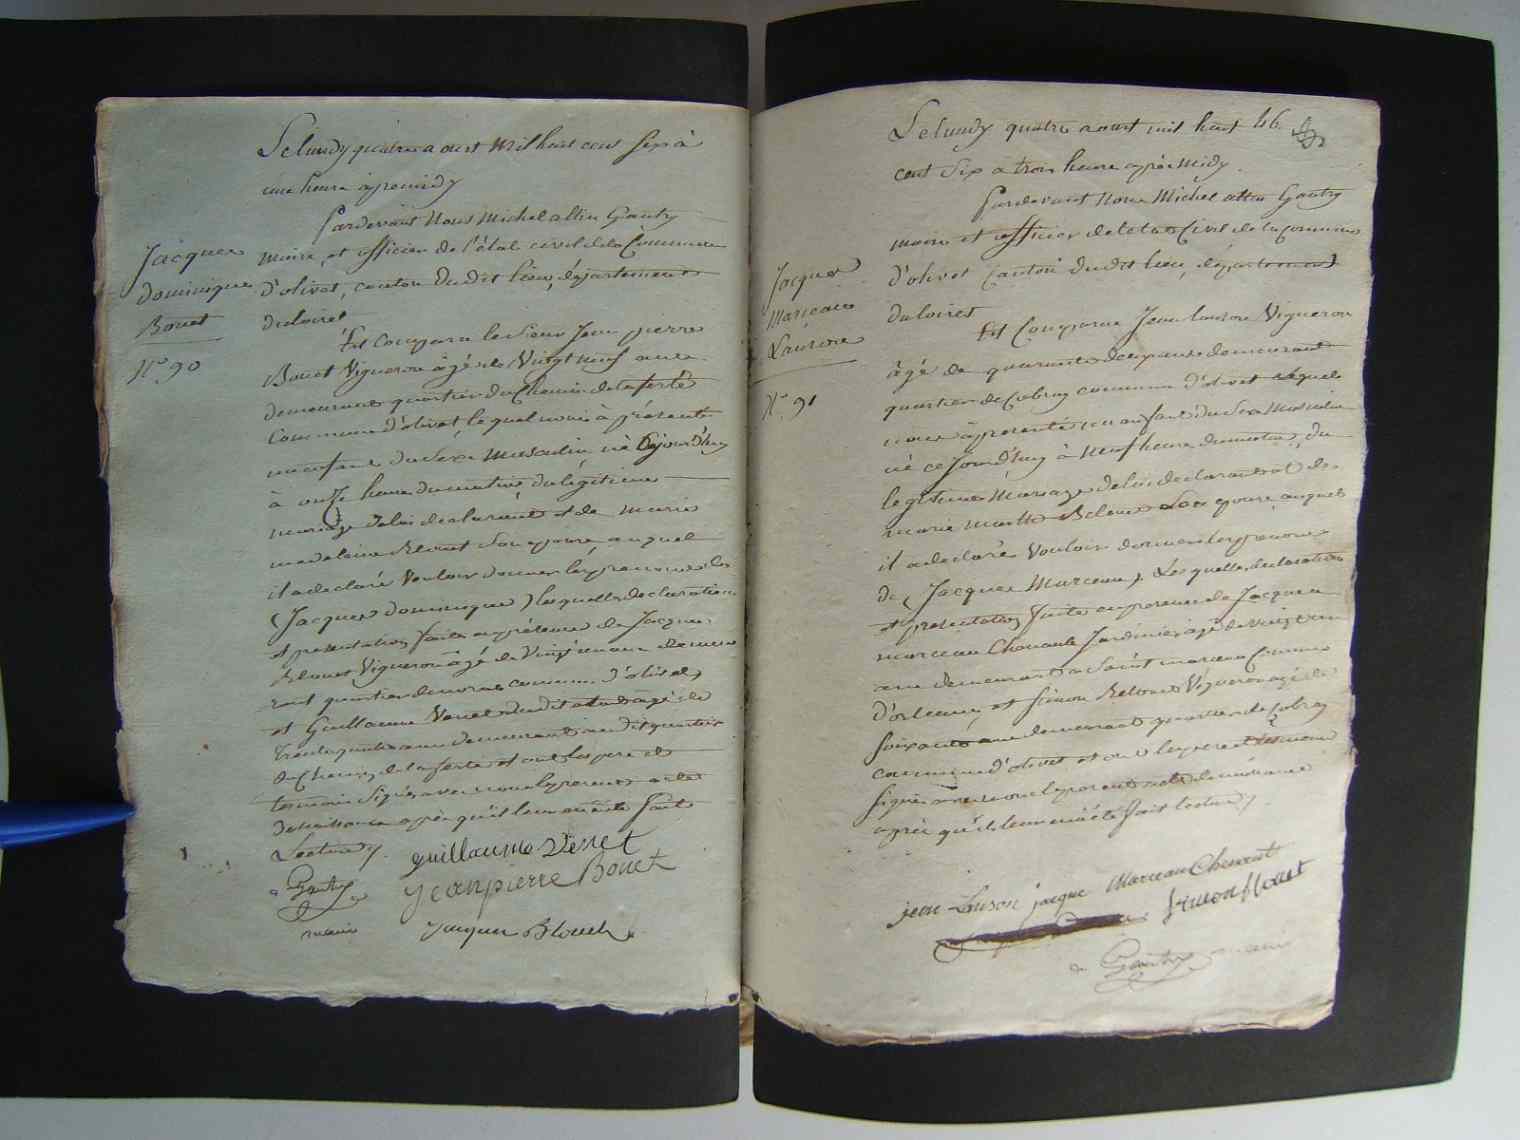 Le lundy quatre aoust mil huit cens six à
une heure après midy
Pardevant Nous Michel altin Gautry
Maire et officier de l'état civil de la Commune
d'olivet, canton dudit lieu, département
du loiret
Jacques
Dominique
Bouet
N° 90
Est Comparu le Sieur Jean pierre
Bouet Vigneron âgé de Vingt neuf ans
demeurant quartier du Chemin de la ferté
Commune d'olivet lequel nous à présenté
un enfant du Sexe Masculin né aujourd'huy
à onze heure du matin du légitime
mariage de lui declarant et de Marie
madelaine Blouet Son epouse auquel
il a declaré Vouloir donner les prenoms de
(Jacques dominique) lesquelles declaration
et presentation faite en présence de Jacques
Blouet Vigneron âgé de Vingt un ans demeu
rant quartier commune d'olivet
et Guillaume Venet âgé de
trente quatre ans demeurant au dit quartier
du Chemin de la ferté et ont les pere et
temoins Signés avec nous le present acte
de naissance après qu'il leur en a été fait
Lecture
guillaume Venet
jeanpierre Bouet
Gautry
maire
jacques Blouet
Le lundy quatre aoust mil huit 46
cent Six a trois heure après Midy
Pardevant Nous Michel altin Gautry
maire et officier de letat Civil de la Commune
d'olivet Canton dudit lieu, département
du loiret
Jacques
Marceau
Lauson
N° 91
Est Comparu Jean lauson Vigneron
âgé de quarante deux ans demeurant
quartier de Cobray commune d'olivet lequel
nous à presenté un enfant du Sexe Masculin
né ce jourd'huy à Neuf heure du matin, du
legitime Mariage de lui declarant et de
marie Marthe Son epouse auquel
il a declaré Vouloir donner les prenoms
de (Jacques Marceau). Lesquelles declaration
et presentation faite en presence de Jacques
marceau Chenault Jardinier âgé de vingt
ans demeurant a Saint marceau Commune
d'orleans, et Simon Blouet Vigneron âgé de
soixante ans demeurant quartier de Cobray
commune d'olivet et ont le pere et temoins
Signés avec nous le present acte de naissance
après qu'il leur en a été fait lecture
jean Lauson jacque Marceau Chenault
Simon Blouet
Gautry maire